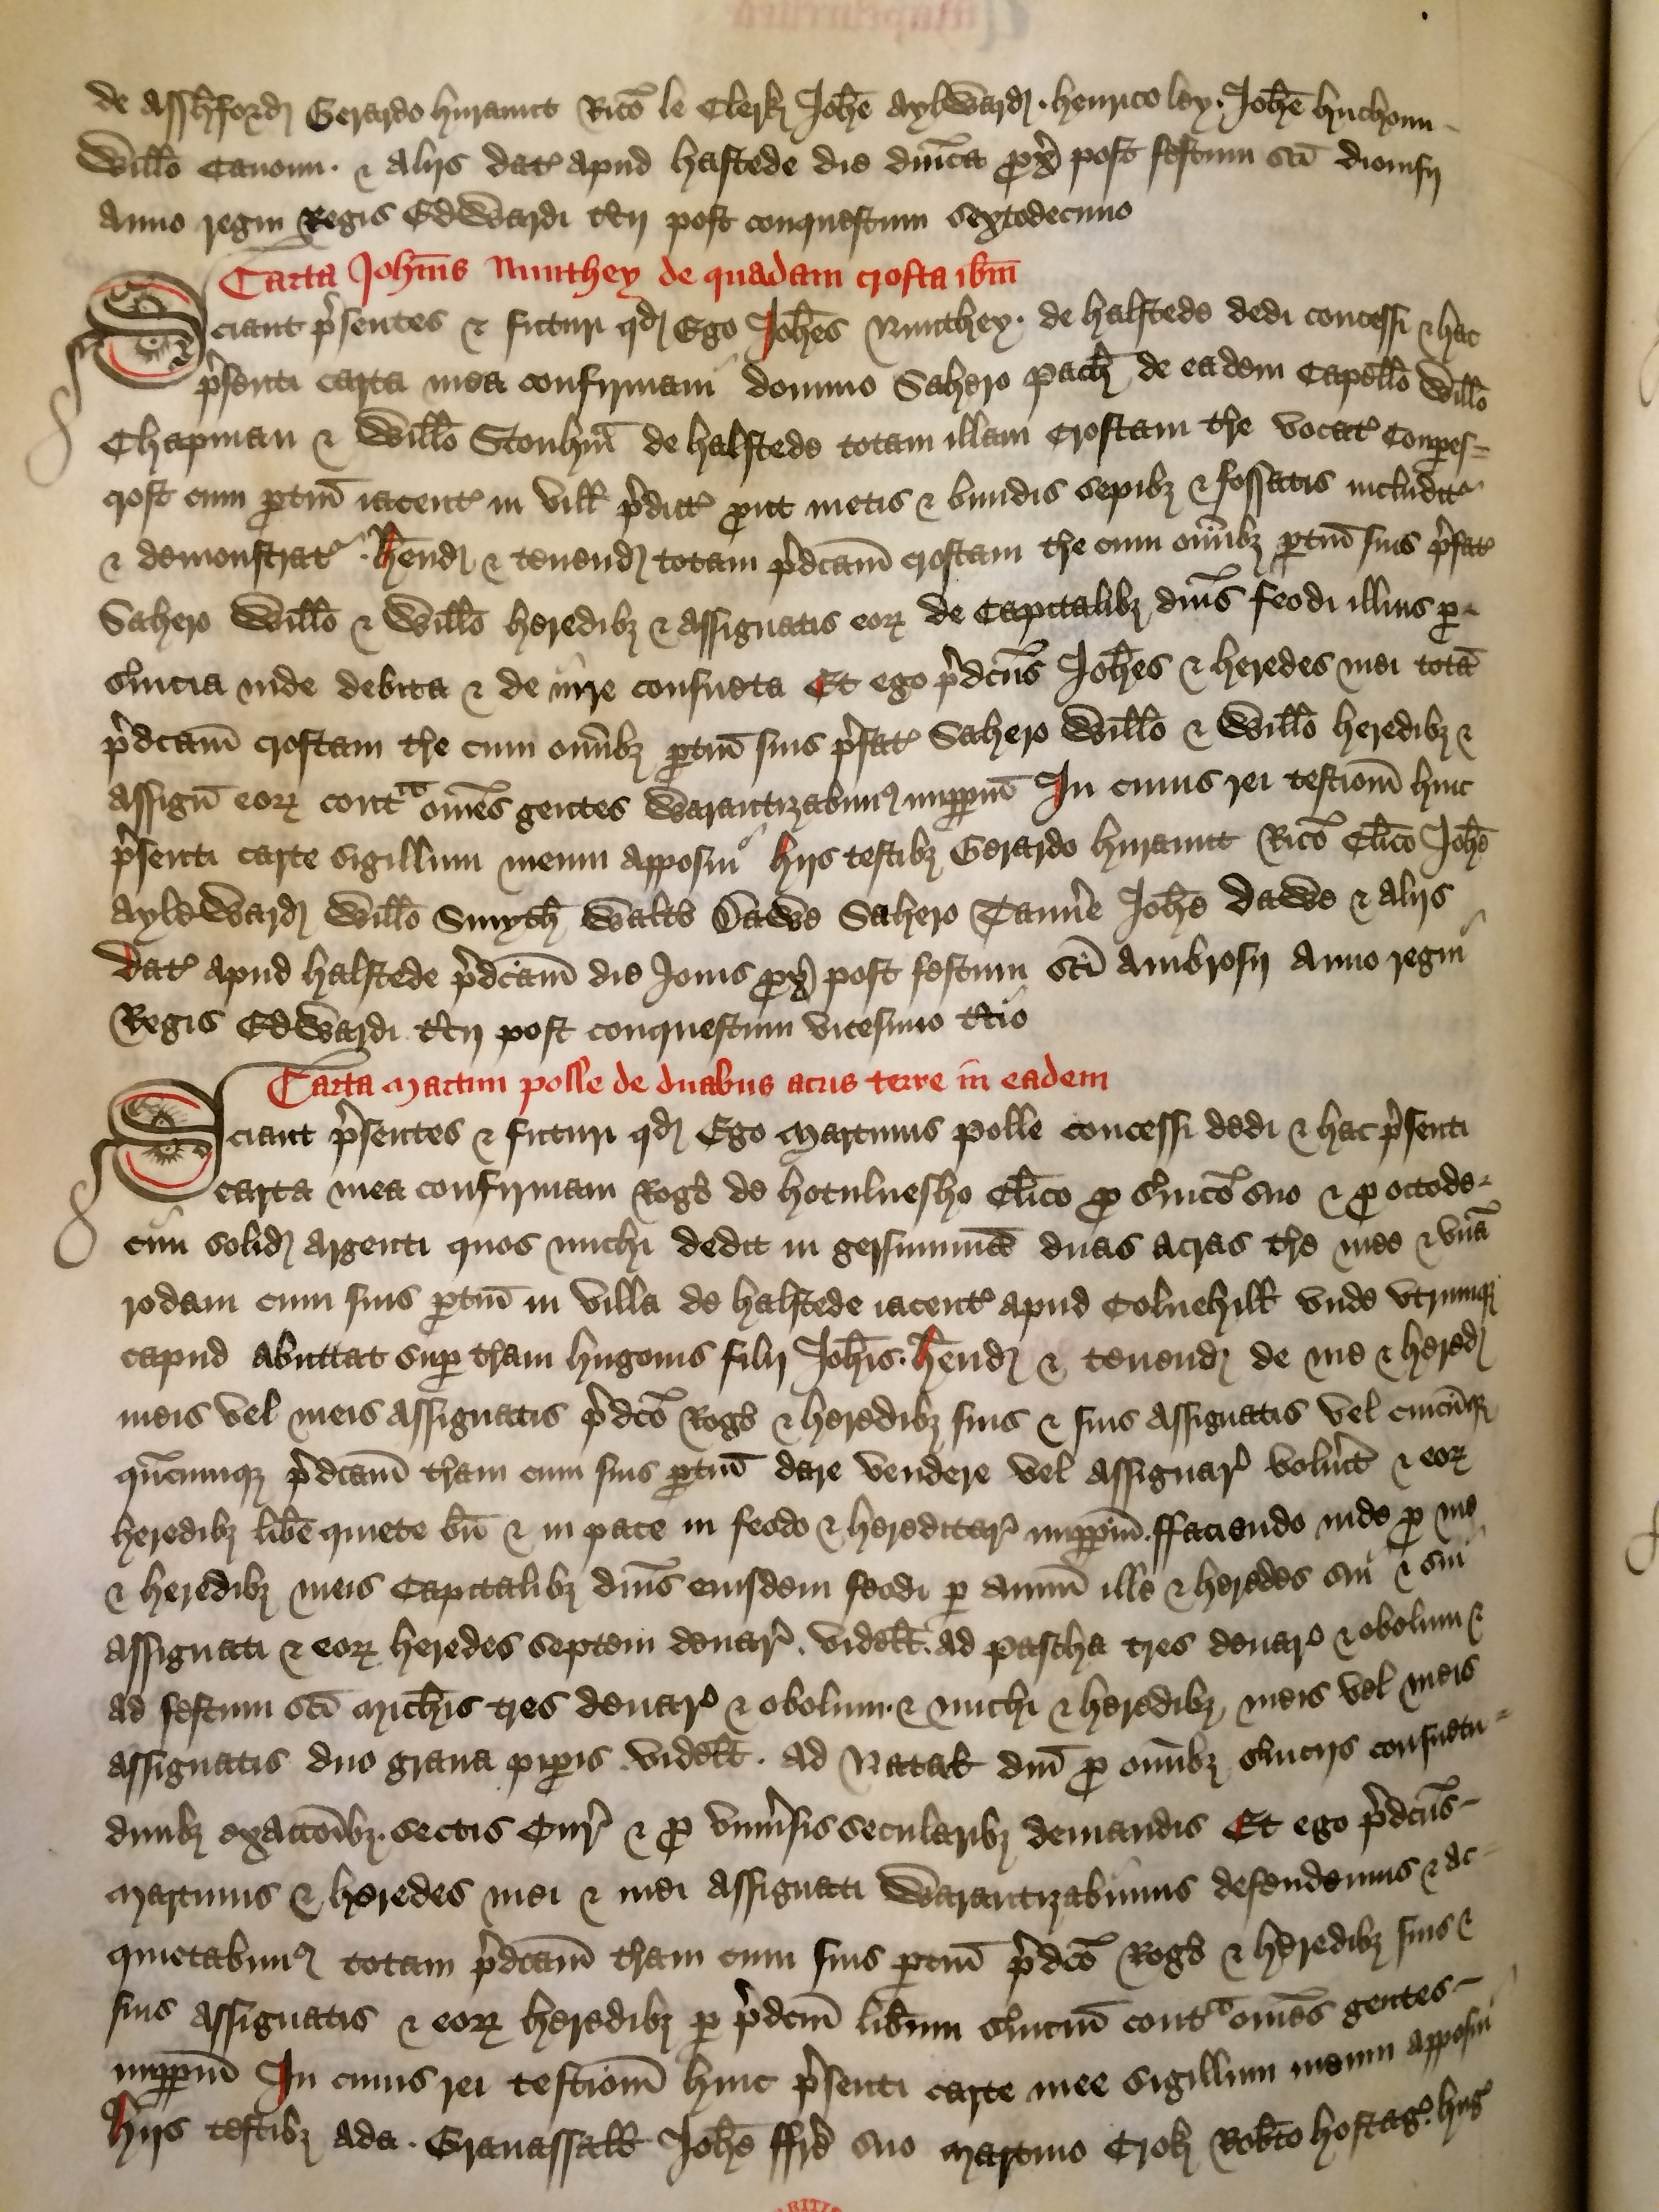 de Assheford Gerardo huraunt Rico le Clerk Johe Aylward . henrico ley . Johe huchonn
Willo Canonn . & alijs dat apud halstede die dnica prox post festum sci dionisij
Anno regni Regis Edwardi tcij post conquestum sextodecimo
Carta Johnis Nunthey de quadam crofta ibm
Sciant psentes & futuri qd Ego Johes Nunthey . de halstede dedi concessi & hac
psenti carta mea confirmaui domino Sahero pach de eadem Capello Willo
Chapman & Willo Stonhm de halstede totam illam croftam tre vocat Coupes
croft cum ptin iacent in vill pdict put metis & bundis sepibz & fossatis includit
& demonstrat . hend & tenend totam pdcam croftam tre cum omibz ptin suis pfat
Sahero Willo & Willo heredibz & assignatis eor de Capitalibz dnis feodi illius p
seruicia inde debita & de iure consueta Et ego pdcus Johes & heredes mei tota
pdcam croftam tre cum omibz ptin suis pfat Sahero Willo & Willo heredibz &
assign eor contra omes gentes Warantizabim imppm In cuius rei testiom huic
psenti carte sigillum meum apposui hijs testibz Gerardo huraunt Rico Clico Johe
Aylewarde Willo Smyth Walto Dawe Sahero Tanne Johe Dawe & alijs
dat apud halstede pdcam die Iouis prox post festum sci Ambrosij Anno regni
Regis Edwardi tcij post conquestum vicesimo tcio
Carta Martini polle de duabus acris terre in eadem
Sciant psentes & futuri qd Ego Martinus polle concessi dedi & hac psenti
carta mea confirmaui Rogo de hotuluesho Clico p seruico suo & p octode
cim solid argenti quos michi dedit in gersummam duas acras tre mee & vna
rodam cum suis ptin in villa de halstede iacent apud Colnehill vnde vtrumq
capud abuttat sup tram hugonis filij Johis . hend & tenend de me & hered
meis vel meis assignatis pdco Rogo & heredibz suis & suis assignatis vel cuicuq
qncumqz pdcam tram cum suis ptin dare vendere vel assignar volut & eor
heredibz libe quiete bn & in pace in feodo & hereditar imppm . ffaciendo inde p me
& heredibz meis Capitalibz dnis eiusdem feodi p annu ille & heredes sui & sui
assignati & eor heredes septem denar . videlt . ad pascha tres denar & obolum &
ad festum sci Michis tres denar & obolum . & michi & heredibz meis vel meis
assignatis duo grana pipis videlt . ad Natale dni p omibz seruicijs consuetu
dinibz exaccoibz . sectis Cur & p vniusis secularibz demandis Et ego pdcus
Martinus & heredes mei & mei assignati Warantizabimus defendemus & ac
quietabim totam pdcam tram cum suis ptin pdco Rogo & heredibz suis &
suis assignatis & eor heredibz p pdcm libum seruicm contra omes gentes
imppm In cuius rei testiom huic psenti carte mee sigillum meum apposui
hijs testibz Ada . Granassall Johe ffre suo Martino Crok Robto hostag . hug